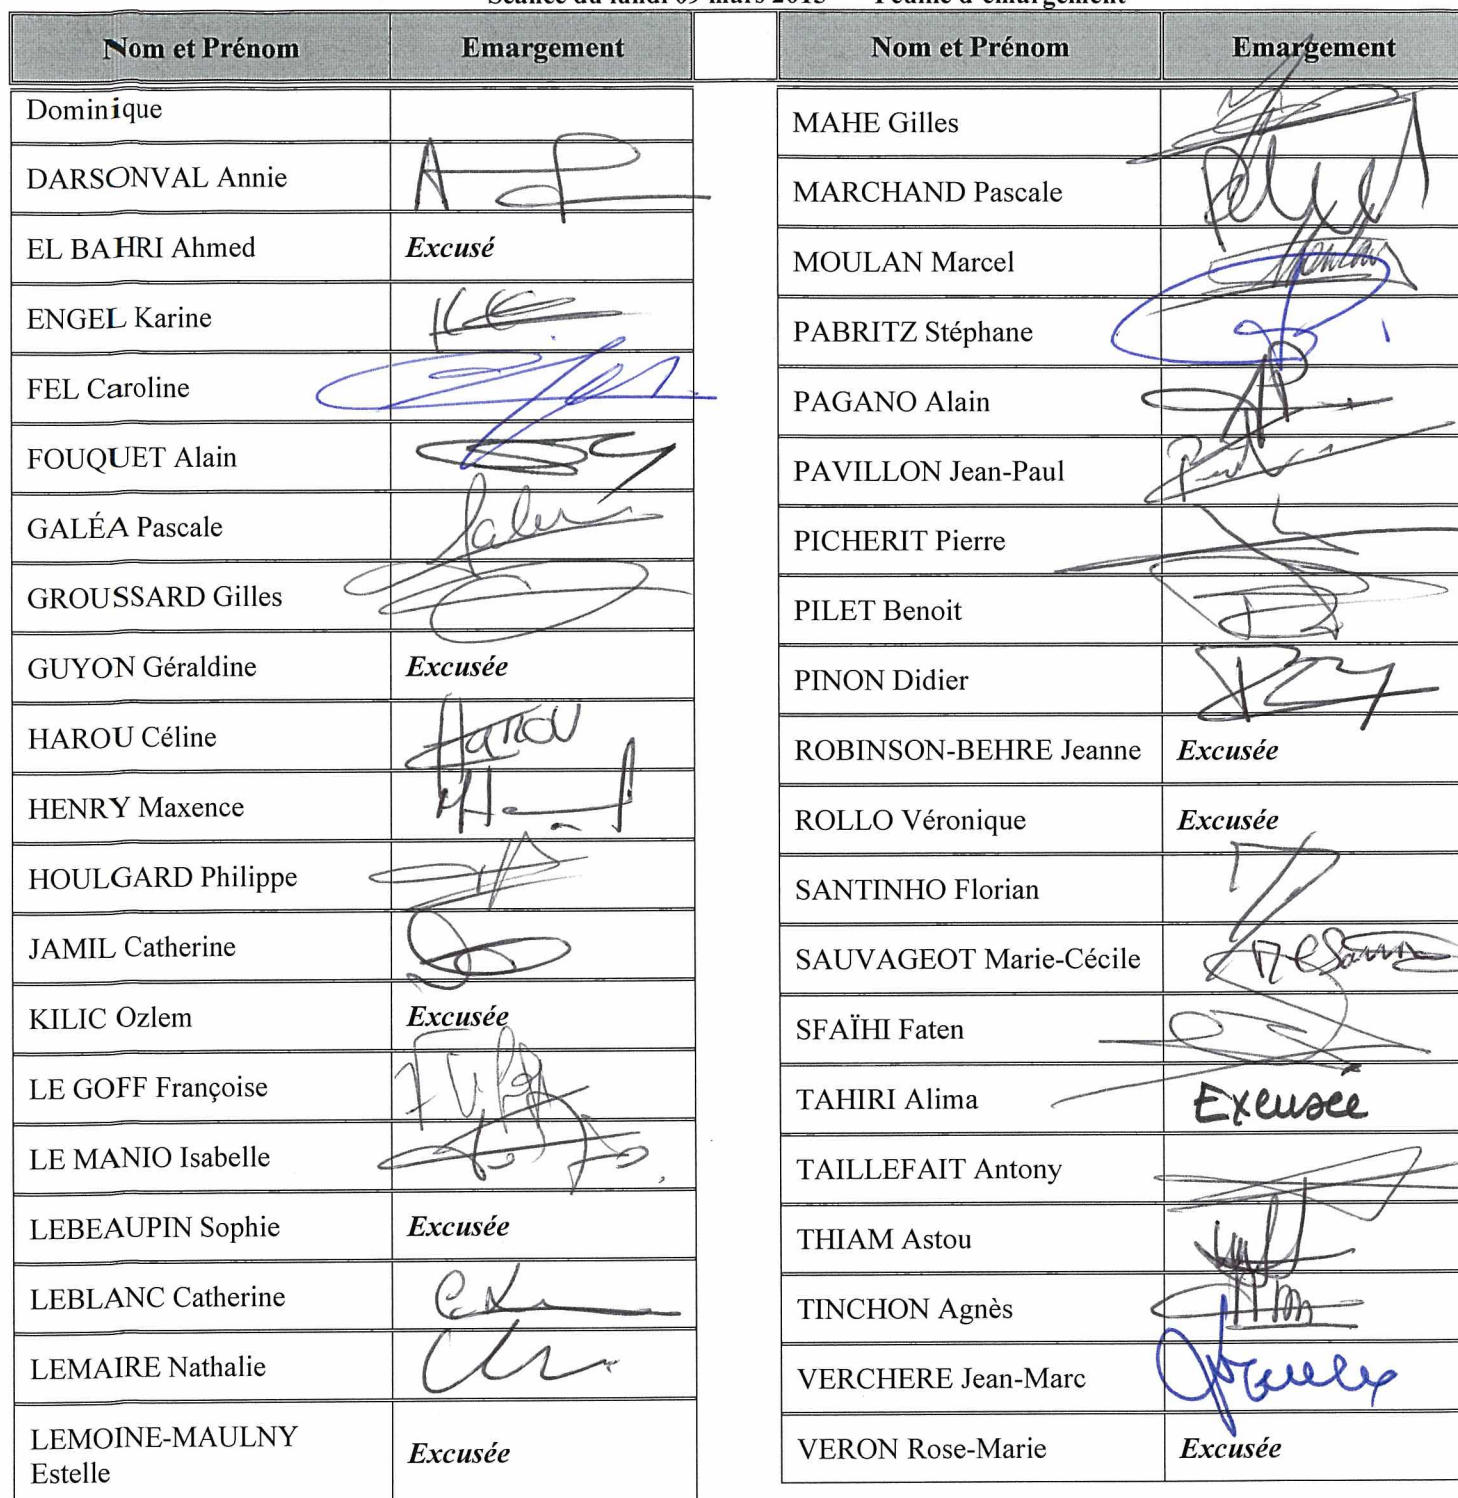 Séance du lundi 09 mars 2015 Feuille d'émargement
Nom et Prénom Emargement
Dominique
DARSONVAL Annie
EL BAHRI Ahmed Excusé
ENGEL Karine
FEL Caroline
FOUQUET Alain
GALÉA Pascale
GROUSSARD Gilles
GUYON Géraldine Excusée
HAROU Céline HAROU
HENRY Maxence
HOULGARD Philippe
JAMIL Catherine
KILIC Ozlem Excusée
LE GOFF Françoise
LE MANIO Isabelle
LEBEAUPIN Sophie Excusée
LEBLANC Catherine
LEMAIRE Nathalie
LEMOINE-MAULNY
Estelle Excusée
Nom et Prénom Emargement
MAHE Gilles
MARCHAND Pascale
MOULAN Marcel
PABRITZ Stéphane
PAGANO Alain
PAVILLON Jean-Paul
PICHERIT Pierre
PILET Benoit
PINON Didier
ROBINSON-BEHRE Jeanne Excusée
ROLLO Véronique Excusée
SANTINHO Florian
SAUVAGEOT Marie-Cécile
SFAÏHI Faten
TAHIRI Alima Excusée
TAILLEFAIT Antony
THIAM Astou
TINCHON Agnès
VERCHERE Jean-Marc
VERON Rose-Marie Excusée